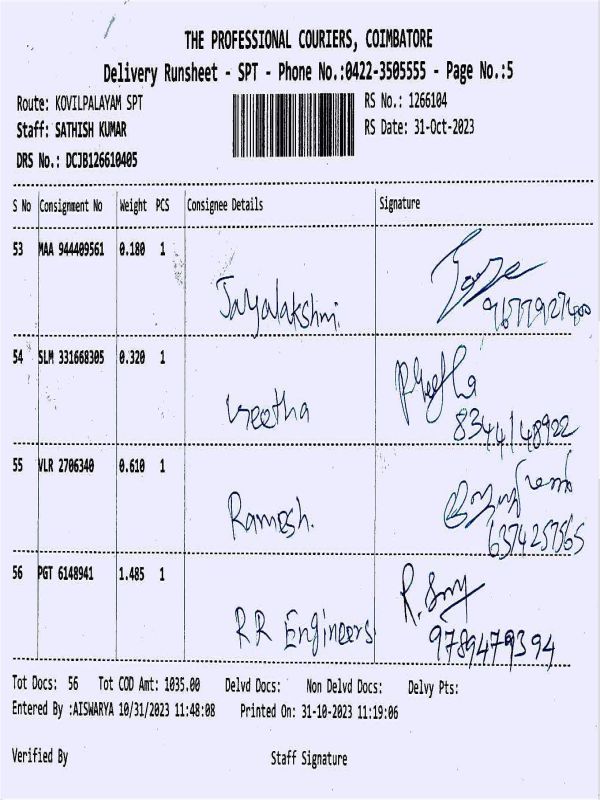 THE PROFESSIONAL COURIERS, COIMBATORE
Delivery Runsheet - SPT - Phone No.:0422-3505555 - Page No.:5
Route: KOVILPALAYAM SPT RS No.: 1266104
Staff: SATHISH KUMAR RS Date: 31-Oct-2023
DRS No.: DCJB126610405
S No Consignment No Weight PCS Consignee Details Signature
53 MAA 944409561 0.180 1
Jayalakshmi
54 SLM 331668305 0.320 1
Geetha
8344148922
55 VLR 2706340 0.610 1
Ramesh.
6374257565
56 PGT 6148941 1.485 1
RR Engineers
9789479394
Tot Docs: 56 Tot COD Amt: 1035.00 Delvd Docs: Non Delvd Docs: Delvy Pts:
Entered By :AISWARYA 10/31/2023 11:48:08 Printed On: 31-10-2023 11:19:06
Verified By Staff Signature